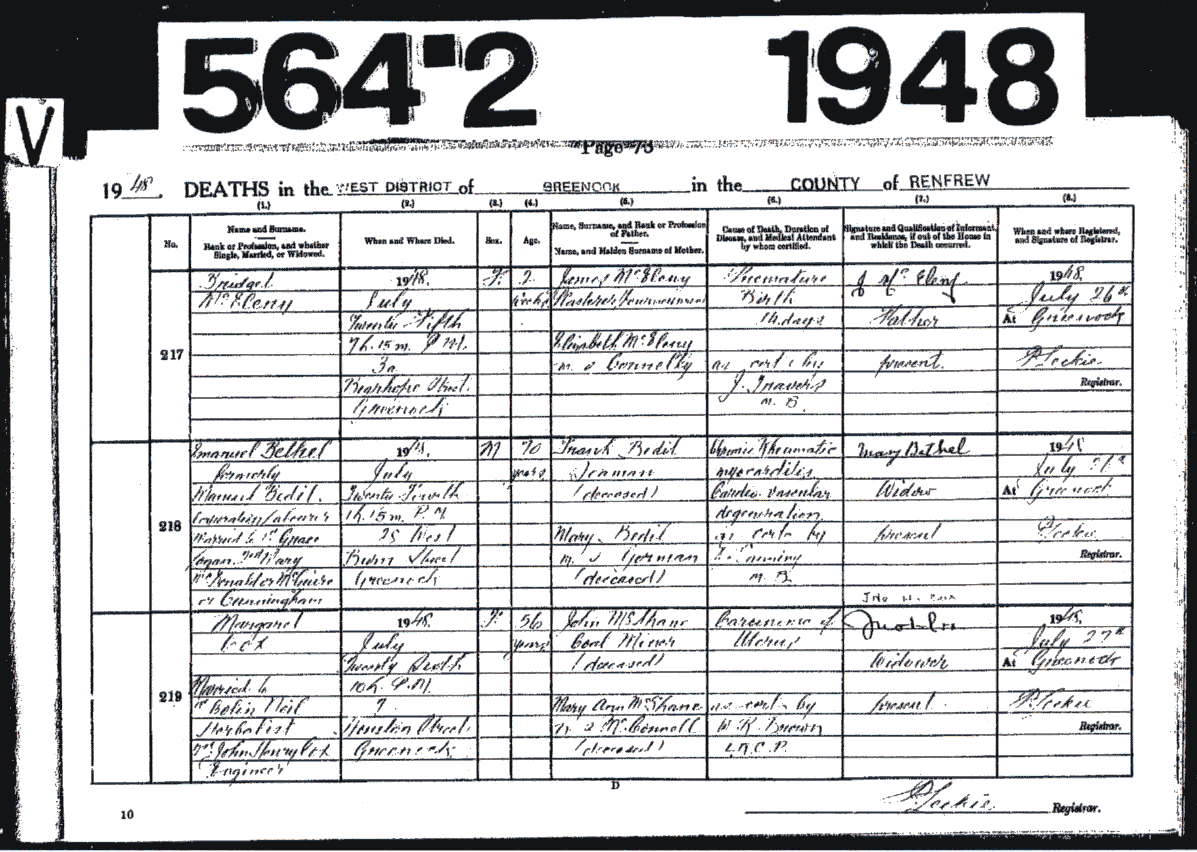 564-2 1948
V
Page 73
1948. DEATHS in the WEST DISTRICT of GREENOCK in the COUNTY of RENFREW
(1.) (2.) (3.) (4.) (5.) (6.) (7.) (8.)
No.
Name and Surname.
Rank or Profession, and whether Single, Married, or Widowed.
When and Where Died.
Sex.
Age.
Name, Surname, and Rank or Profession of Father.
Name, and Maiden Surname of Mother.
Cause of Death, Duration of Disease, and Medical Attendant by whom certified.
Signature and Qualification of Informant, and Residence, if out of the House in which the Death occurred.
When and where Registered, and Signature of Registrar.
217
Bridget
McEleny
1948.
July
Twenty Fifth
7h. 15m. P.M.
3a
Street.
Greenock
F.
2
weeks
James McEleny
Elizabeth McEleny
m. s Connelly
Premature
Birth
14 days
as cert by
J. Travers
M. B.
J McEleny
Father
present.
1948.
July 26th
At Greenock
P. Leckie
Registrar.
218
Emanuel Bethel
formerly
Manuel Bedil.
Corporation labourer
Married to 1st Grace
Logan 2nd Mary
McGuire
or Cunningham
1948.
July
Twenty Fourth
1h. 15m. P.M.
25 West
Burn Street
Greenock
M
70
years
Frank Bedil
Seaman
(deceased)
Mary Bedil
m. s Gorman
(deceased)
Chronic Rheumatic
myocarditis
Cardio vascular
degeneration
as cert by
M. B.
Mary Bethel
Widow
present
1948
July
At Greenock
P. Leckie
Registrar.
219
Margaret
Cox
Married to
1st Colin Neil
Herbalist
2nd John Henry Cox
Engineer
1948.
July
Twenty Sixth
10h. P.M.
7
Houston Street
Greenock
F.
56
years
John McShane
Coal Miner
(deceased)
Mary Ann McShane
m. s McConnell
(deceased)
Carcinoma of
Uterus
as cert by
W. R. Brown
L.R.C.P.
Jno H. Cox
Widower
present
1948.
July 27th
At Greenock
P. Leckie
Registrar.
D
10
P. Leckie. Registrar.